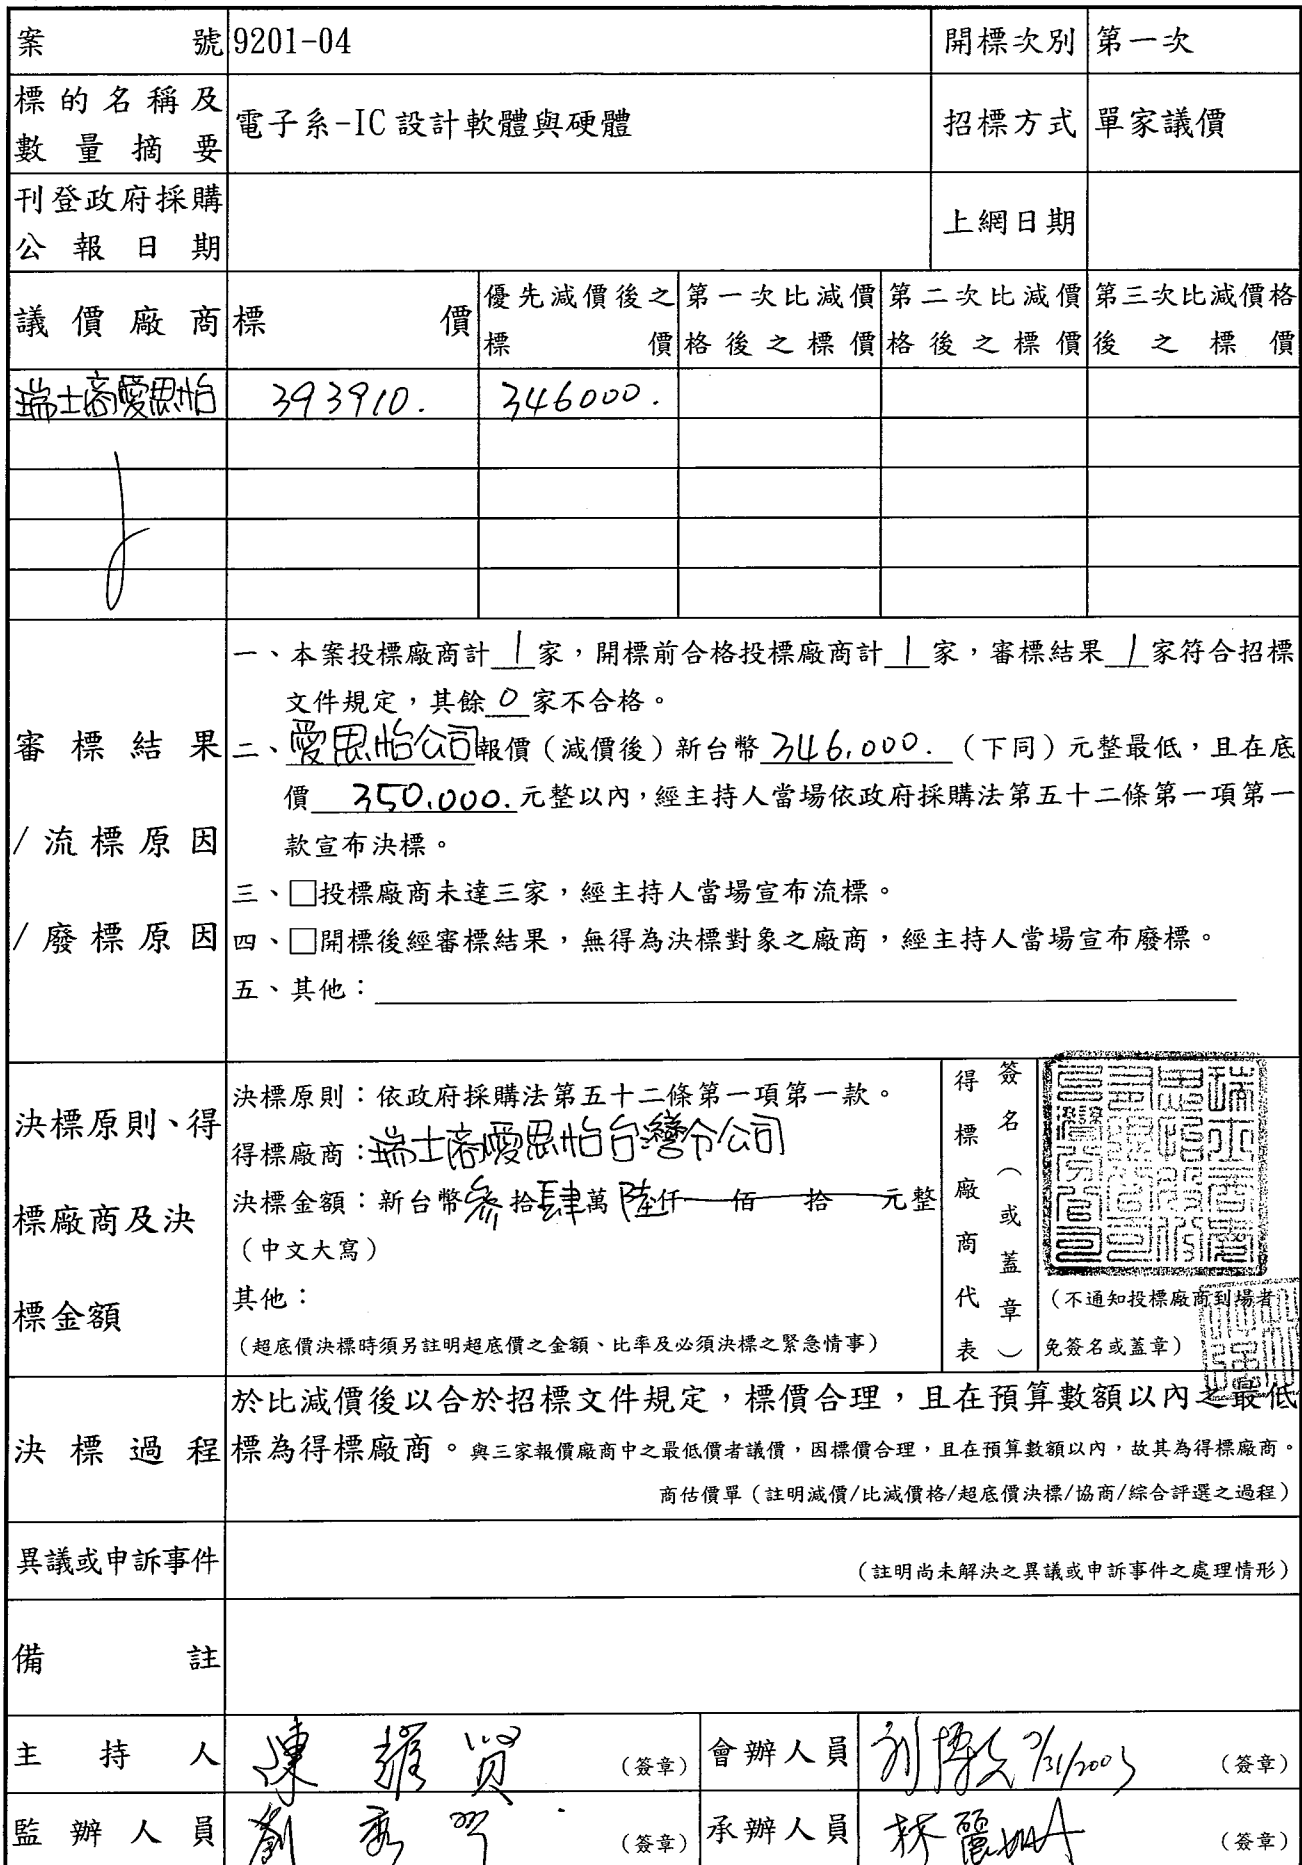 案號 9201-04 開標次別 第一次
標的名稱及數量摘要 電子系-IC設計軟體與硬體 招標方式 單家議價
刊登政府採購公報日期 上網日期
議價廠商 標價 優先減價後之標價 第一次比減價格後之標價 第二次比減價格後之標價 第三次比減價格後之標價
瑞士商愛思怡 393910. 346000.
審標結果
/流標原因
/廢標原因
一、本案投標廠商計1家，開標前合格投標廠商計1家，審標結果1家符合招標
文件規定，其餘0家不合格。
二、愛思怡公司報價（減價後）新台幣346,000.（下同）元整最低，且在底
價350,000.元整以內，經主持人當場依政府採購法第五十二條第一項第一
款宣布決標。
三、□投標廠商未達三家，經主持人當場宣布流標。
四、□開標後經審標結果，無得為決標對象之廠商，經主持人當場宣布廢標。
五、其他：
決標原則、得
標廠商及決
標金額
決標原則：依政府採購法第五十二條第一項第一款。
得標廠商：瑞士商愛思怡台灣分公司
決標金額：新台幣參拾肆萬陸仟佰拾元整
（中文大寫）
其他：
（超底價決標時須另註明超底價之金額、比率及必須決標之緊急情事）
得標廠商代表
簽名（或蓋章）
（不通知投標廠商到場者
免簽名或蓋章）
決標過程
於比減價後以合於招標文件規定，標價合理，且在預算數額以內之最低
標為得標廠商。與三家報價廠商中之最低價者議價，因標價合理，且在預算數額以內，故其為得標廠商。
商估價單（註明減價/比減價格/超底價決標/協商/綜合評選之過程）
異議或申訴事件 （註明尚未解決之異議或申訴事件之處理情形）
備註
主持人 （簽章） 會辦人員 （簽章）
監辦人員 （簽章） 承辦人員 （簽章）